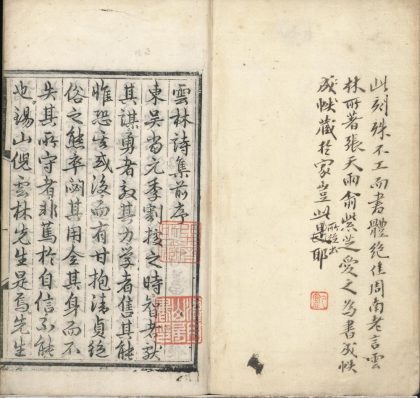 此刻殊不工而書體絶佳周南老言雲
林所著張天雨俞紫芝愛之為書成帙
藏於家豈此
所從出
耶
雲林詩集前序
東吳當元季割據之時智者獻
其謀勇者效其力學者售其能
惟恐其或後而有甘抱清貞絶
俗之態率閟其用全其身而不
失其所守者非篤於自信不能
也錫山倪雲林先生是焉先生